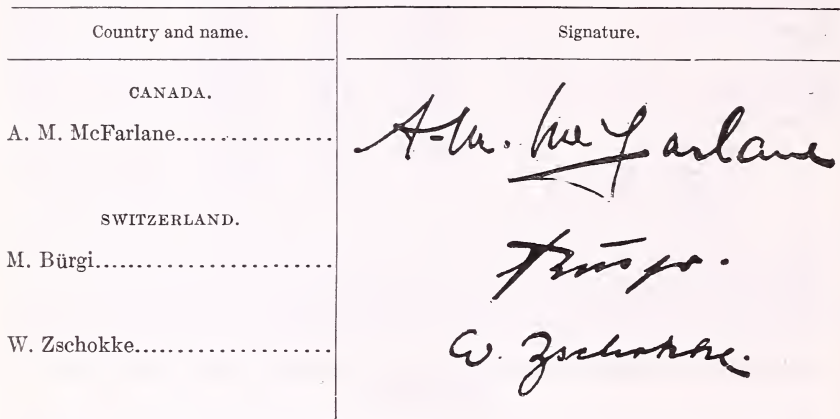 Country and name. Signature.
CANADA.
A. M. McFarlane................ A. M. McFarlane
SWITZERLAND.
M. Bürgi........................ Bürgi.
W. Zschokke.................... W. Zschokke.